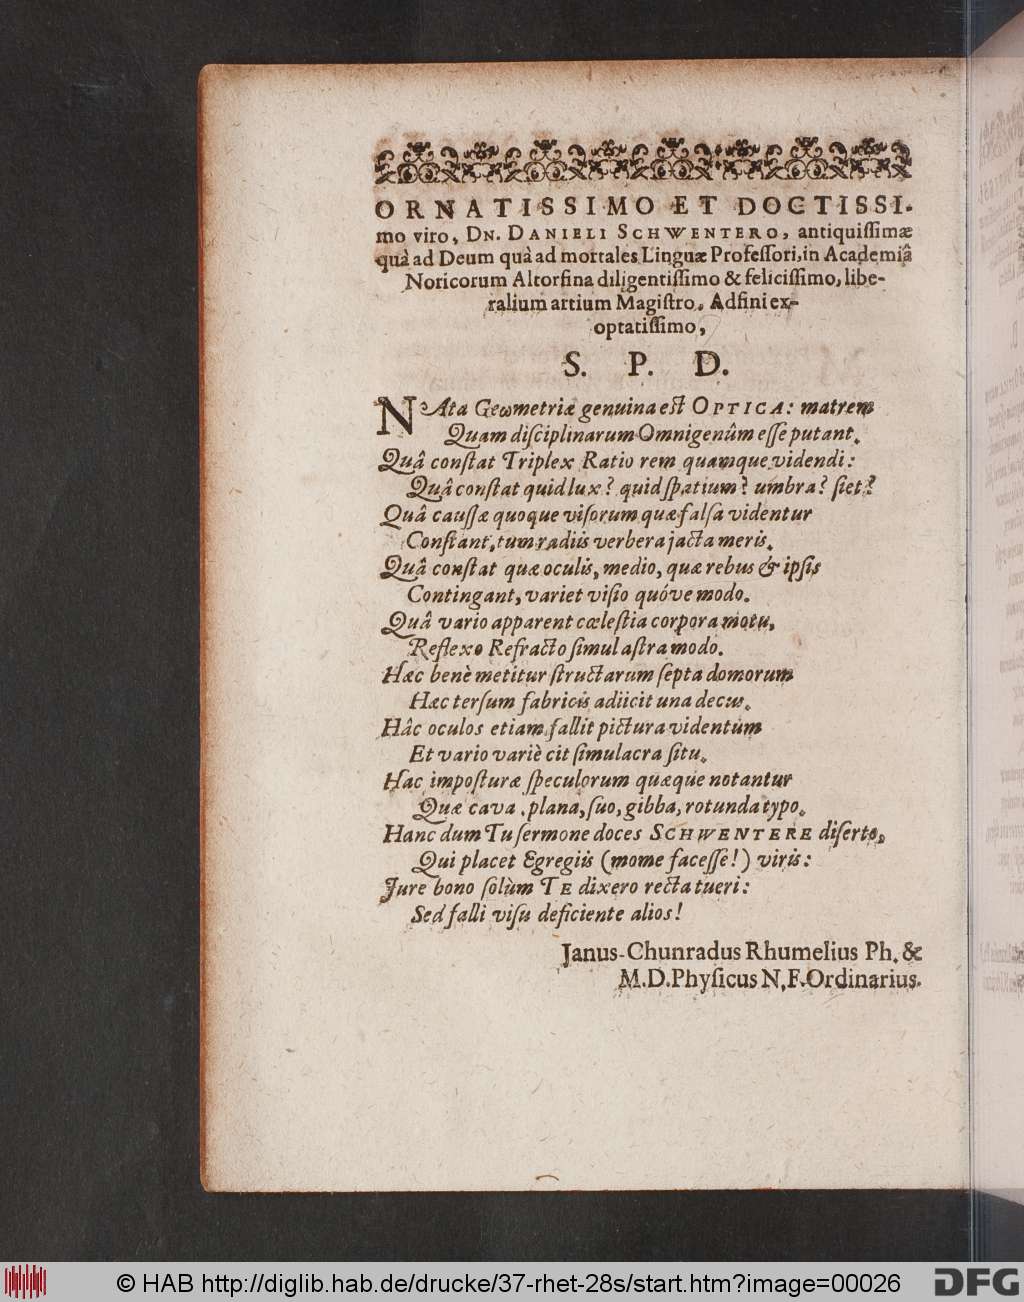 ORNATISSIMO ET DOCTISSI-
mo viro, DN. DANIELI SCHWENTERO, antiquiſſimæ
quà ad Deum quà ad mortales Linguæ Profeſſori, in Academiâ
Noricorum Altorfina diligentiſſimo & feliciſſimo, libe-
ralium artium Magiſtro, Adfini ex-
optatiſſimo,
S. P. D.
NAta Geωmetriæ genuina est OPTICA: matrem
Quam diſciplinarum Omnigenûm eſſe putant.
Quâ conſtat Triplex Ratio rem quamque videndi:
Quâ conſtat quid lux? quid ſpatium? umbra? ſiet?
Quâ cauſſæ quoque viſorum quæ falſa videntur
Conſtant, tum radiis verbera jacta meris.
Quâ conſtat quæ oculis, medio, quæ rebus & ipſis
Contingant, variet viſio quóve modo.
Quâ vario apparent cæleſtia corpora motu,
Reflexo Refracto ſimul aſtra modo.
Hæc benè metitur ſtructarum ſepta domorum
Hæc terſum fabricis adiicit una decus.
Hâc oculos etiam fallit pictura videntum
Et vario variè cit ſimulacra ſitu.
Hac impoſturæ ſpeculorum quæque notantur
Quæ cava, plana, ſuo, gibba, rotunda typo.
Hanc dum Tu ſermone doces SCHWENTERE diſerto,
Qui placet Egregiis (mome faceſſe!) viris:
Jure bono ſolùm TE dixero recta tueri:
Sed falli viſu deficiente alios!
Janus-Chunradus Rhumelius Ph. &
M.D. Phyſicus N. F. Ordinarius.
© HAB http://diglib.hab.de/drucke/37-rhet-28s/start.htm?image=00026
DFG